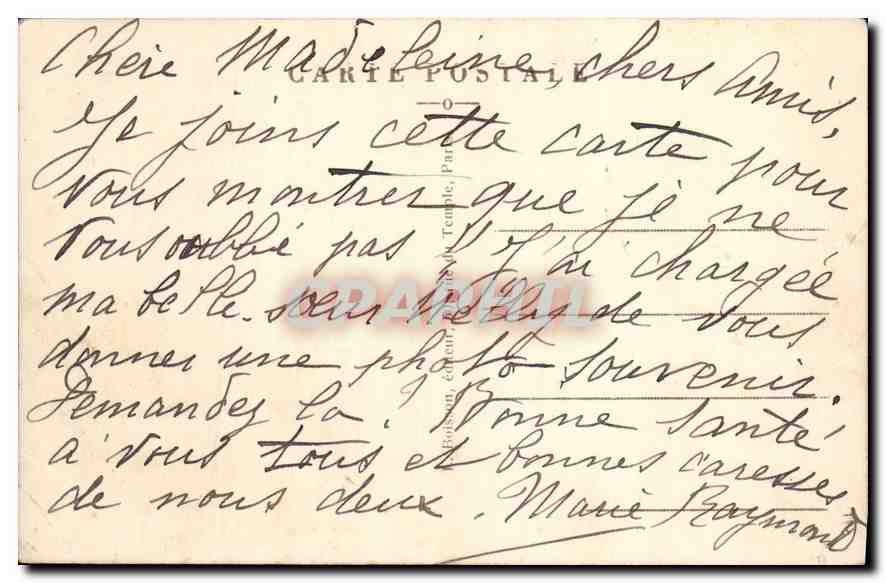 Chère Madeleine, chers Amis,
CARTE POSTALE
Je joins cette carte pour
vous montrer que je ne
vous oubbié pas! J'ai chargée
ma belle-sœur Nelly de vous
donner une photo souvenir.
Demandez la! Bonne santé
à vous tous et bonnes caresses
de nous deux. Marie Raymond
Boisson, éditeur, du Temple, Paris
CPAPHIL